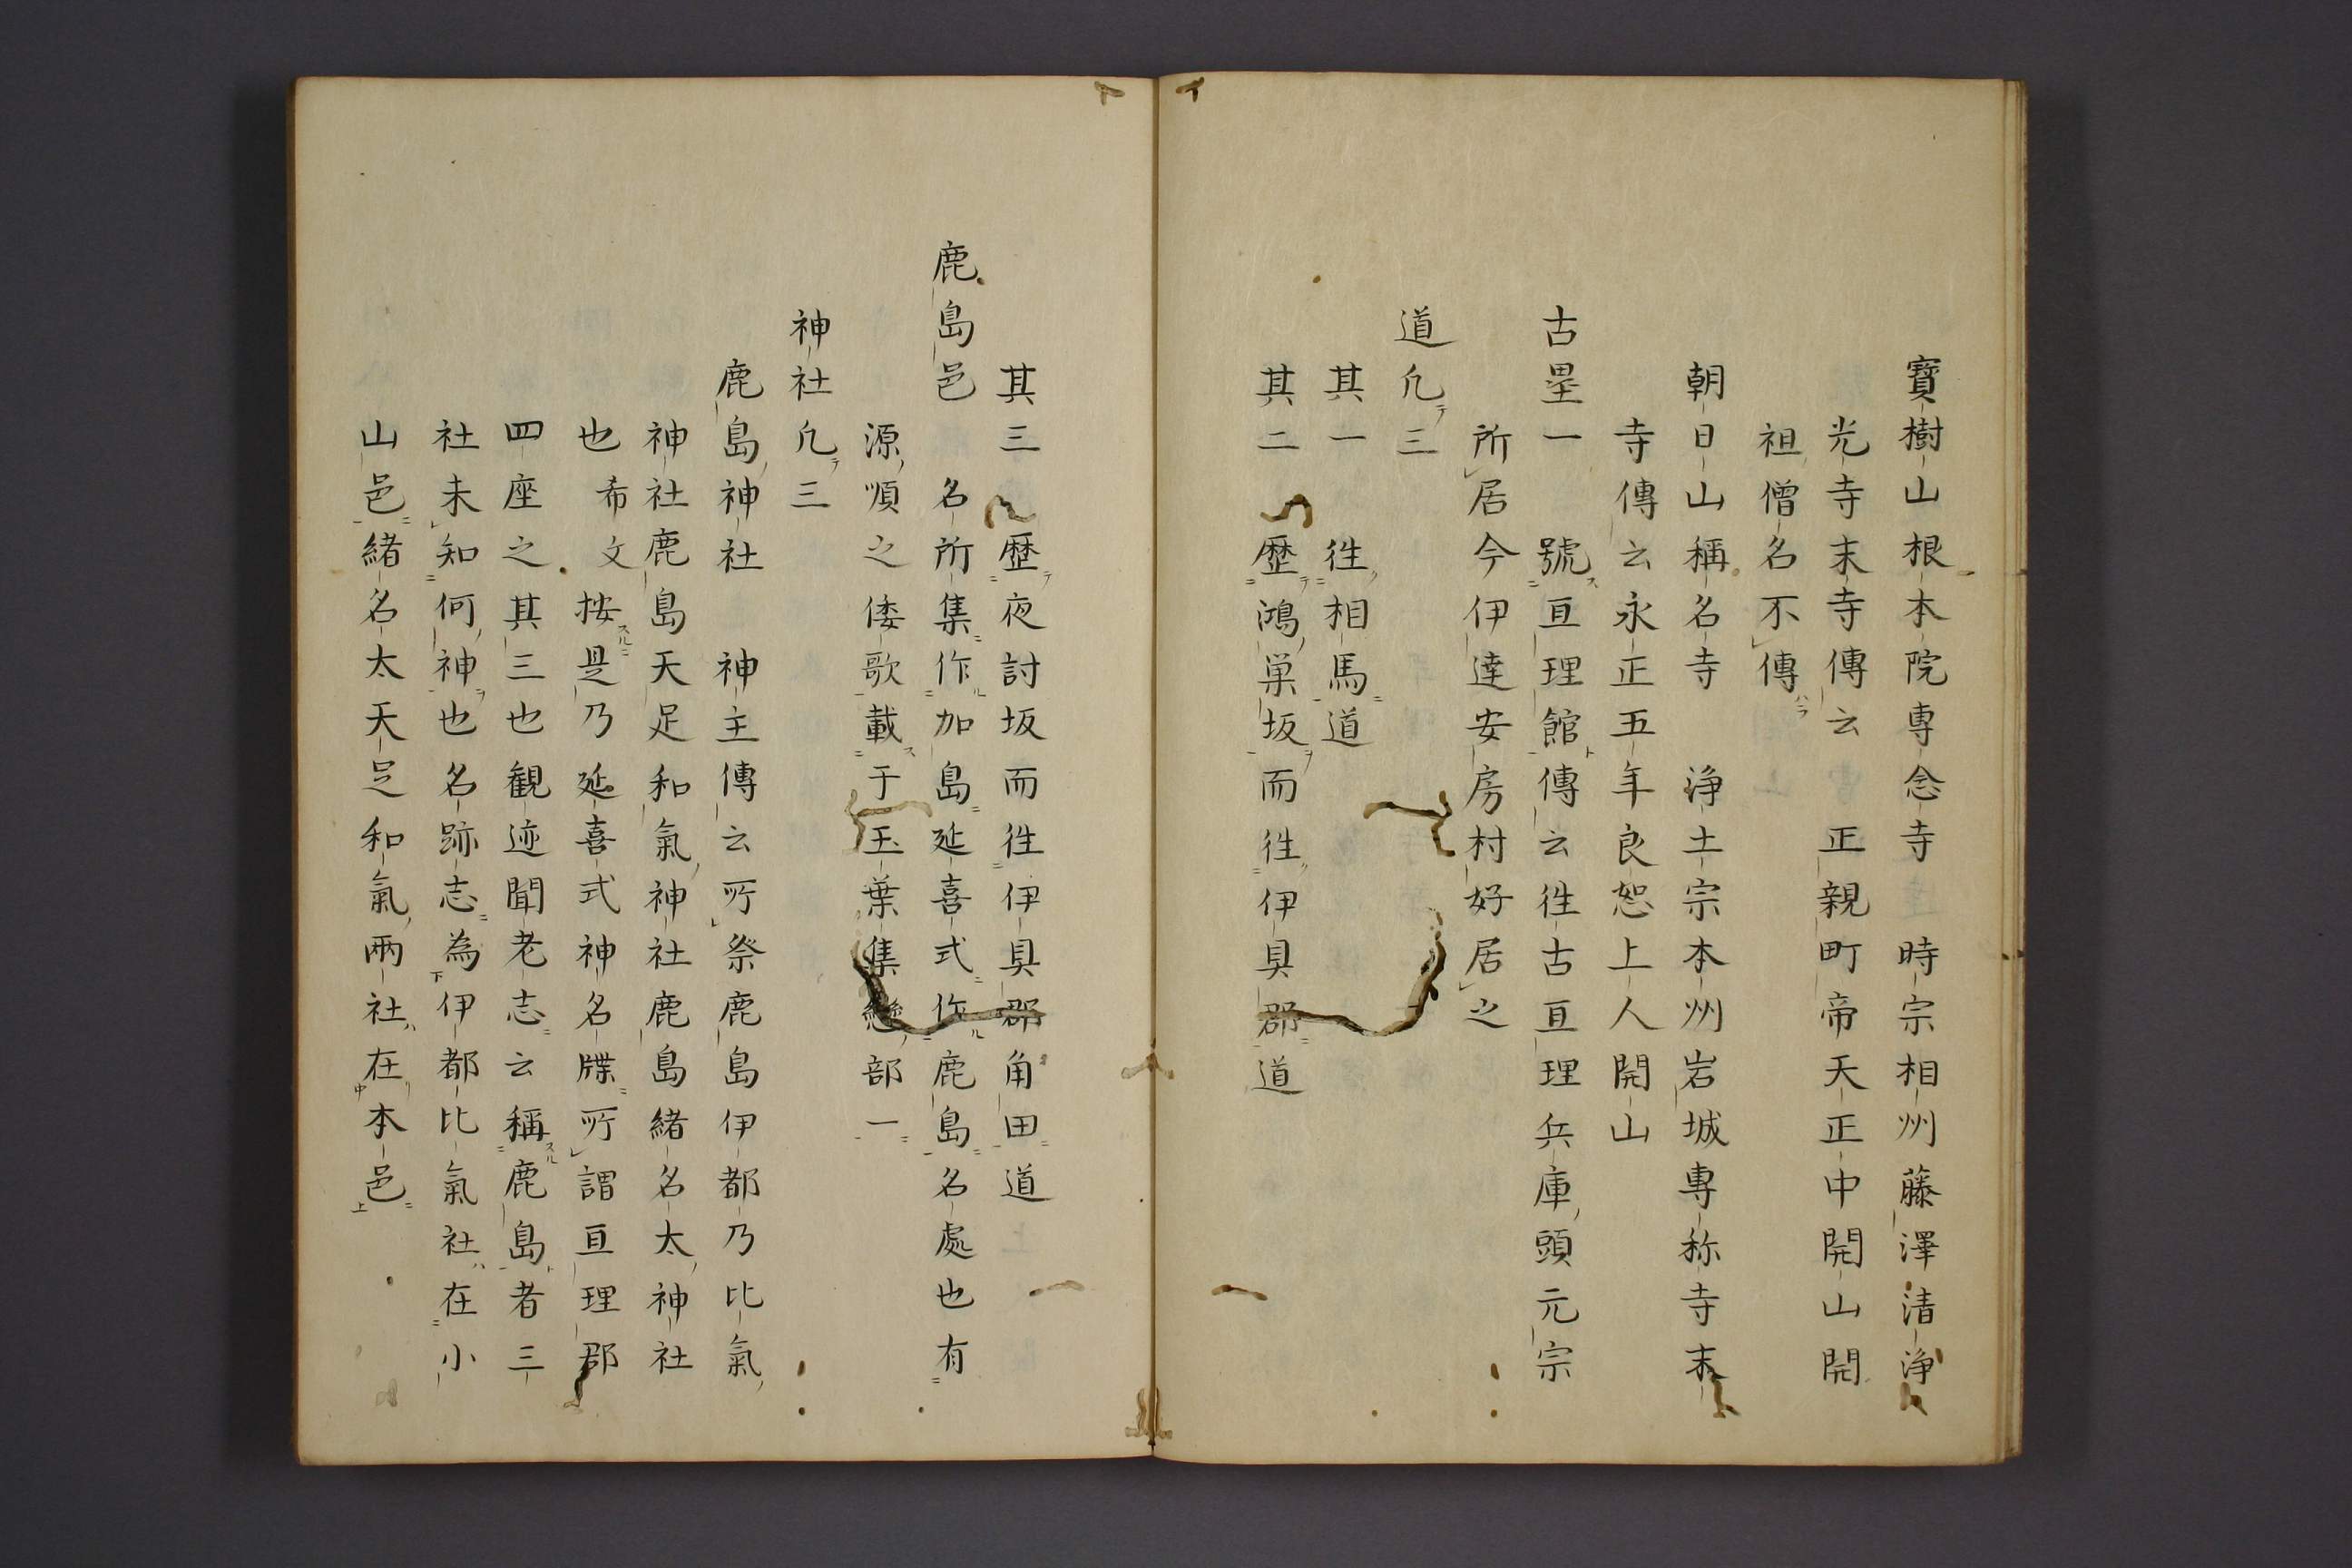 寳樹山根本院専念寺　時宗相州藤澤清浄
光寺末寺傳云　正親町帝天正中開山開
祖僧名不傳
朝日山稱名寺　浄土宗本州岩城專称寺末
寺傳云永正五年良恕上人開山
古壘一　號亘理館傳云徃古亘理兵庫頭元宗
所居今伊達安房村好居之
道凢三
其一　徃相馬道
其二　歴鴻巣坂而徃伊具郡道
其三　歴夜討坂而徃伊具郡角田道
鹿島邑　名所集作加島延喜式作鹿島名處也有
源順之倭歌載于玉葉集戀部一
神社凢三
鹿島神社　神主傳云所祭鹿島伊都乃比氣
神社鹿島天足和氣神社鹿島緒名太神社
也希文按是乃延喜式神名牒所謂亘理郡
四座之其三也観迹聞老志云稱鹿島者三
社未知何神也名跡志為伊都比氣社在小
山邑緒名太天足和氣兩社在本邑